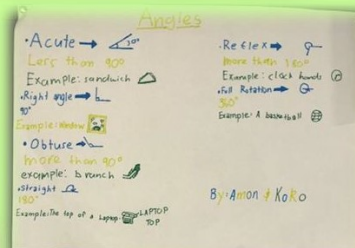 Angles
• Acute → 30°
Less than 90°
Example: sandwich
• Right angle →
90°
Example: Window
• Obtuse →
more than 90°
example: branch
• Straight
180°
Example: The top of a Laptop LAPTOP TOP
• Reflex →
more than 180°
Example: clock hands
• Full Rotation →
360°
Example: A basketball
By: Amon & KoKo